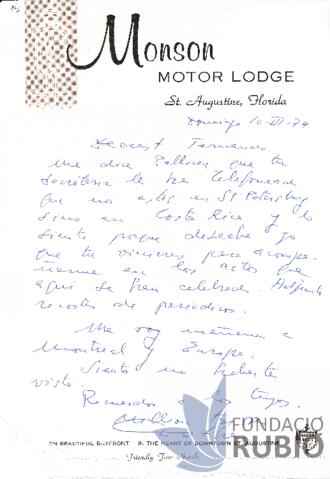 Monson
MOTOR LODGE
St. Augustine, Florida
Domingo 10-III-74
Dearest Fernando:
Me dice Pellicer que tu
secretaria le ha telefoneado
que no estás en St Petersburg
sino en Costa Rica y lo
siento porque deseaba yo
que tu vinieras para acompa-
ñarme en los actos que
aquí se han celebrado. Adjunto
recortes de periodicos.
Me voy mañana a
Montreal y Europa.
Siento no haberte
visto.
Recuerdos a los tuyos
ON BEAUTIFUL BAYFRONT IN THE HEART OF DOWNTOWN ST. AUGUSTINE
FUNDACIÓ
RUBIÓ